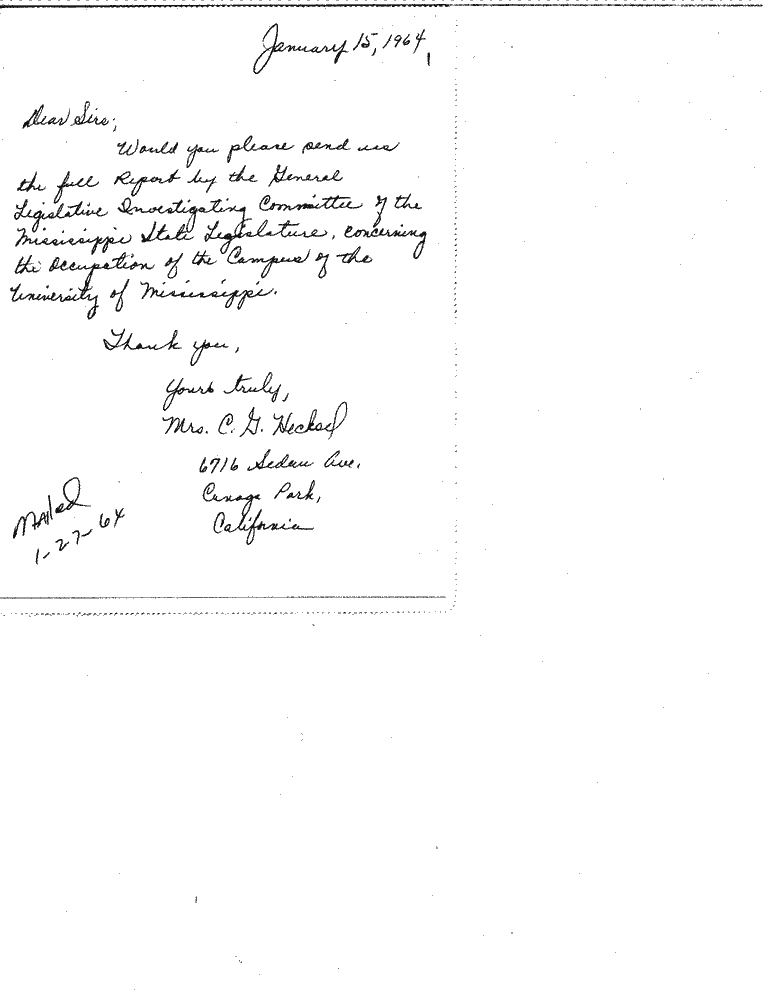 January 15, 1964
Dear Sirs;
Would you please send us
the full Report by the General
Legislative Investigating Committee of the
Mississippi State Legislature, concerning
the Occupation of the Campus of the
University of Mississippi.
Thank you,
Yours truly,
Mrs. C. G.
6716 Sedan Ave.
Canoga Park,
California
Mailed
1-27-64